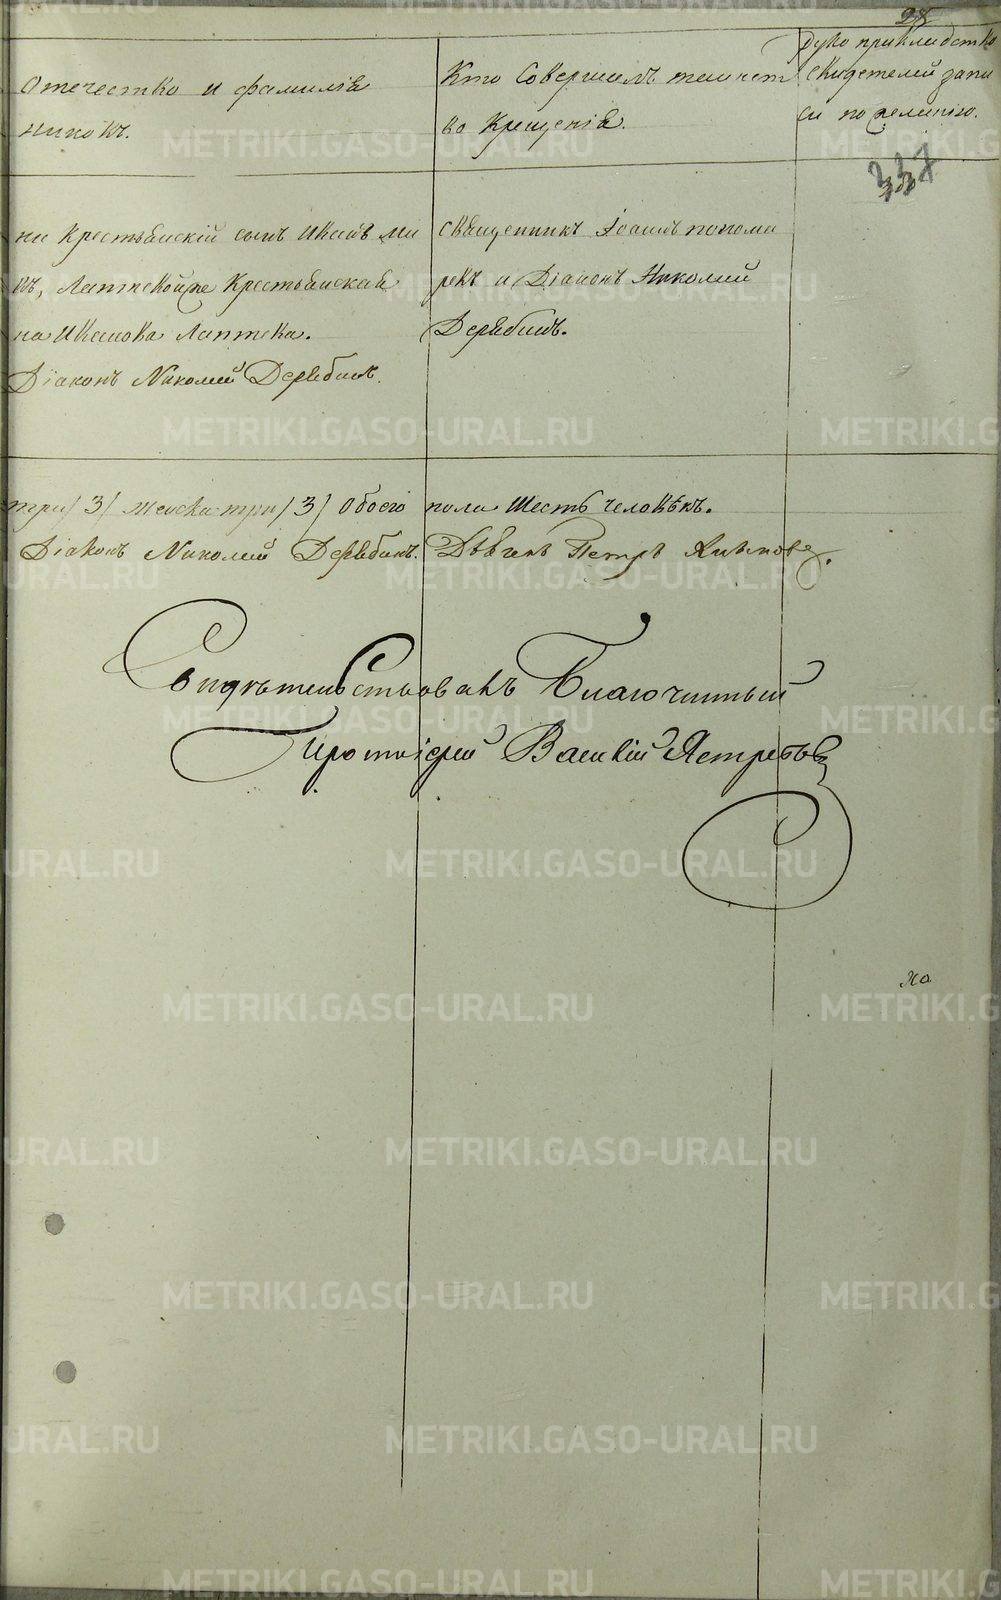 28
отечество и фамилія
никовъ.
Кто Совершалъ таинст
во Крещенія.
Руко прикладство
свидетелей запи
си по желанію.
337
ни Крестьянскій сынъ Иванъ
Крестьянская
на Иванова Лаптева.
Діаконъ Николай Дерябинъ.
Священникъ Іоаннъ понома
ревъ и Діаконъ Николай
Дерябинъ.
три /3/ женска три /3/ Обоего пола Шесть человѣкъ.
Діаконъ Николай Дерябинъ. Дьячекъ Петръ
Свидѣтельствовалъ Благочинный
Протоіерей Василій Ястребовъ
METRIKI.GASO-URAL.RU